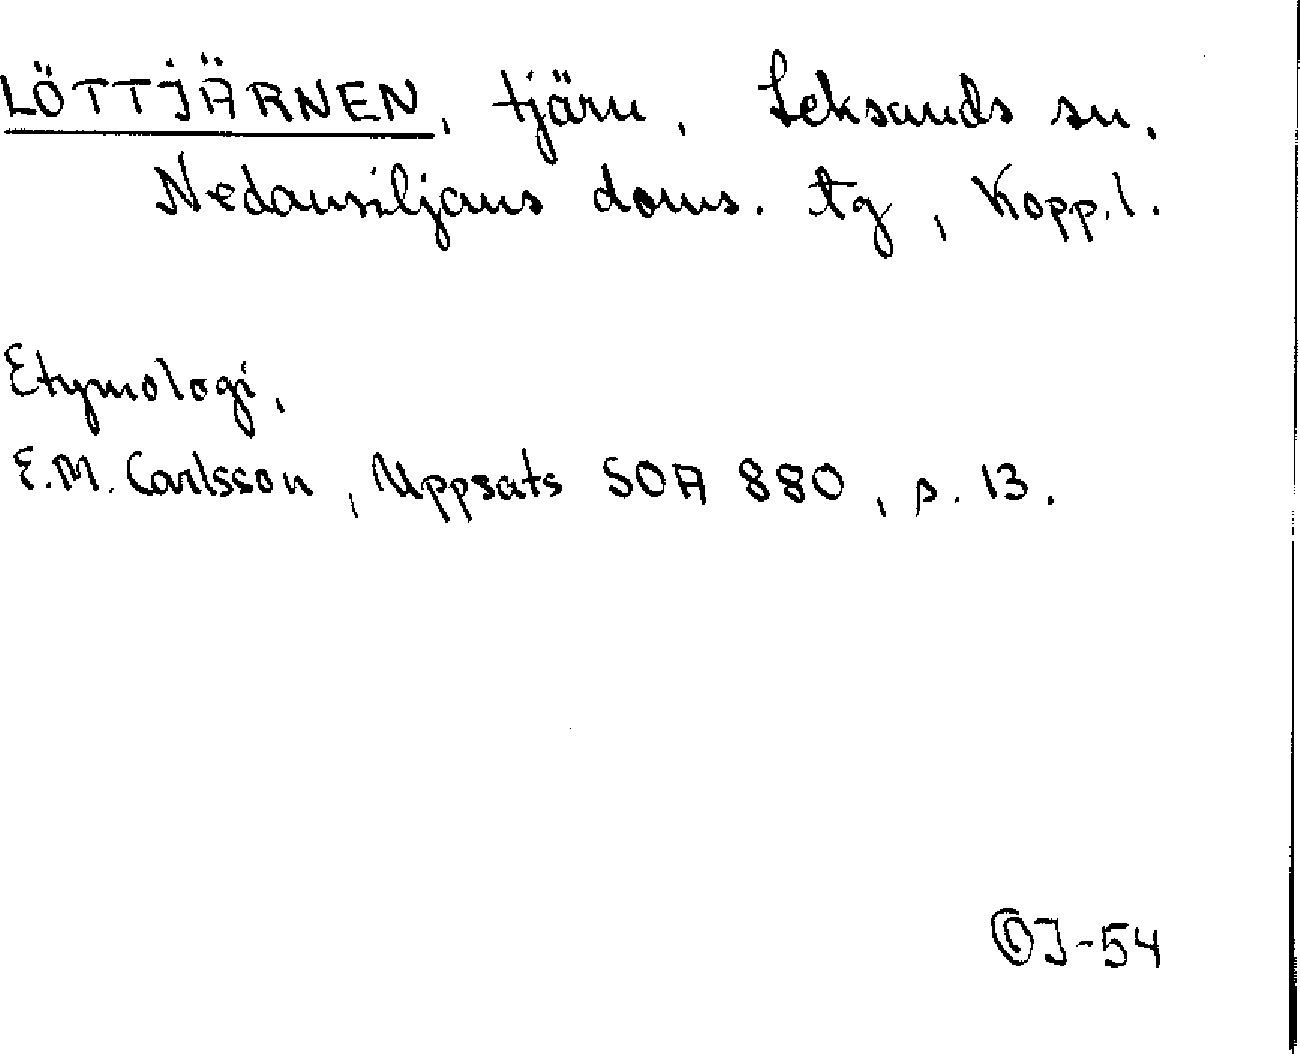 LÖTTJÄRNEN, tjärn, Leksands sn.
Nedansiljans doms. tg, Kopp.l.
Etymologi,
E.M. Carlsson, Uppsats SOA 880, s. 13.
OJ-54